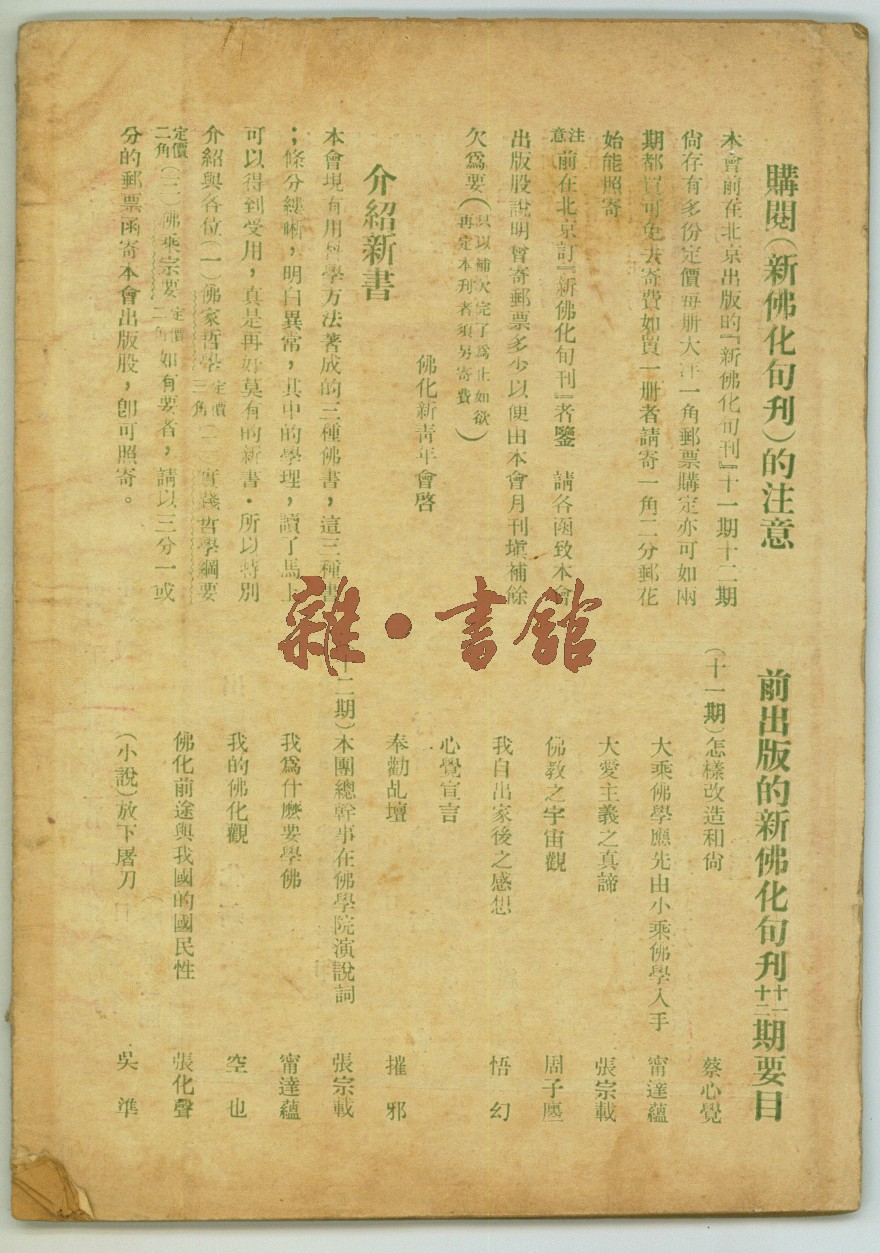 購閱(新佛化旬刊)的注意
本會前在北京出版的『新佛化旬刊』十一期十二期
尙存有多份定價每册大洋一角郵票購定亦可如兩
期都買可免去寄費如買一册者請寄一角二分郵花
始能照寄
注意前在北京訂『新佛化旬刊』者鑒 請各函致本會
出版股說明曾寄郵票多少以便由本會月刊塡補餘
欠爲要(只以補欠完了爲止如欲
再定本刊者須另寄費)
佛化新靑年會啓
介紹新書
本會現有用科學方法著成的三種佛書,這三種書
;條分縷晰,明白異常,其中的學理,讀了馬上
可以得到受用,真是再好莫有的新書·所以特別
介紹與各位(一)佛家哲學定價三角(二)實踐哲學綱要
定價二角(三)佛乘宗要定價二角如有要者,請以三分一或
分的郵票函寄本會出版股,卽可照寄。
前出版的新佛化旬刊十一十二期要目
(十一期)怎樣改造和尙 蔡心覺
大乘佛學應先由小乘佛學入手 甯達蘊
大愛主義之真諦 張宗載
佛教之宇宙觀 周子
我自出家後之感想 悟幻
心覺宣言
奉勸乩壇 摧邪
十二期)本團總幹事在佛學院演說詞 張宗載
我爲什麽要學佛 甯達蘊
我的佛化觀 空也
佛化前途與我國的國民性 張化聲
(小說)放下屠刀 吳準
雜·書館